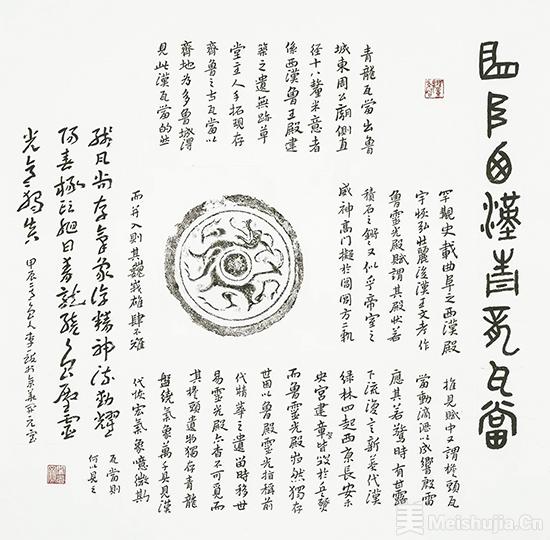 曲阜西漢青龍瓦當
青龍瓦當出魯
城東周公廟側直
徑十八釐米意者
係西漢魯王殿建
築之遺無路草
堂主人手拓現存
齊魯之古瓦當以
齊地為多魯城得
見此漢瓦當的然
罕觀史載曲阜之西漢殿
宇恢弘壯麗後漢王文考作
魯靈光殿賦謂其殿狀若
積石之鏘鏘又似乎帝室之
威神高門擬於閶闔方二軌
而并入則其巍峩雄肆不難
推見賦中又謂椽頭瓦
當動滴瀝以成響殷雷
應其若驚時有甘露
下流浸之新莽代漢
綠林四起西京長安未
央宮建章皆毀於兵燹
而魯靈光殿巋然獨存
世因以魯殿靈光指稱前
代精華之遺留時移世
易靈光殿亦杳不可覓而
其椽頭遺物獨存青龍
盤繞氣象萬千具見漢
代恢宏氣象噫微斯
瓦當則
何以見之
尚存氣象淳精神流動耀
日
光
甲辰
美 Meishujia.Cn